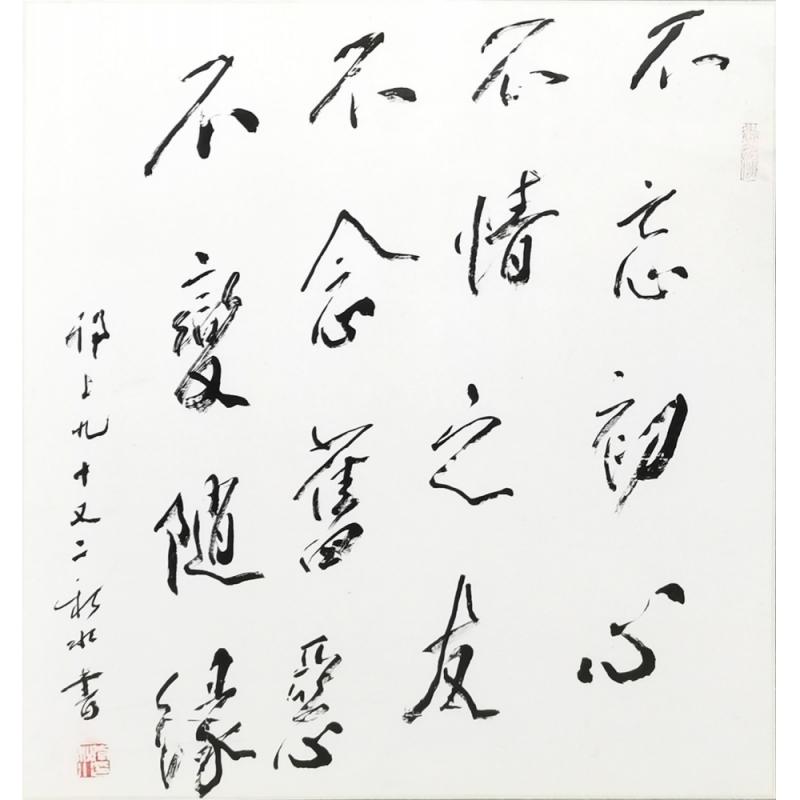 不忘初心
不情之友
不念舊惡
不變隨緣
邗上九十又二秋水書